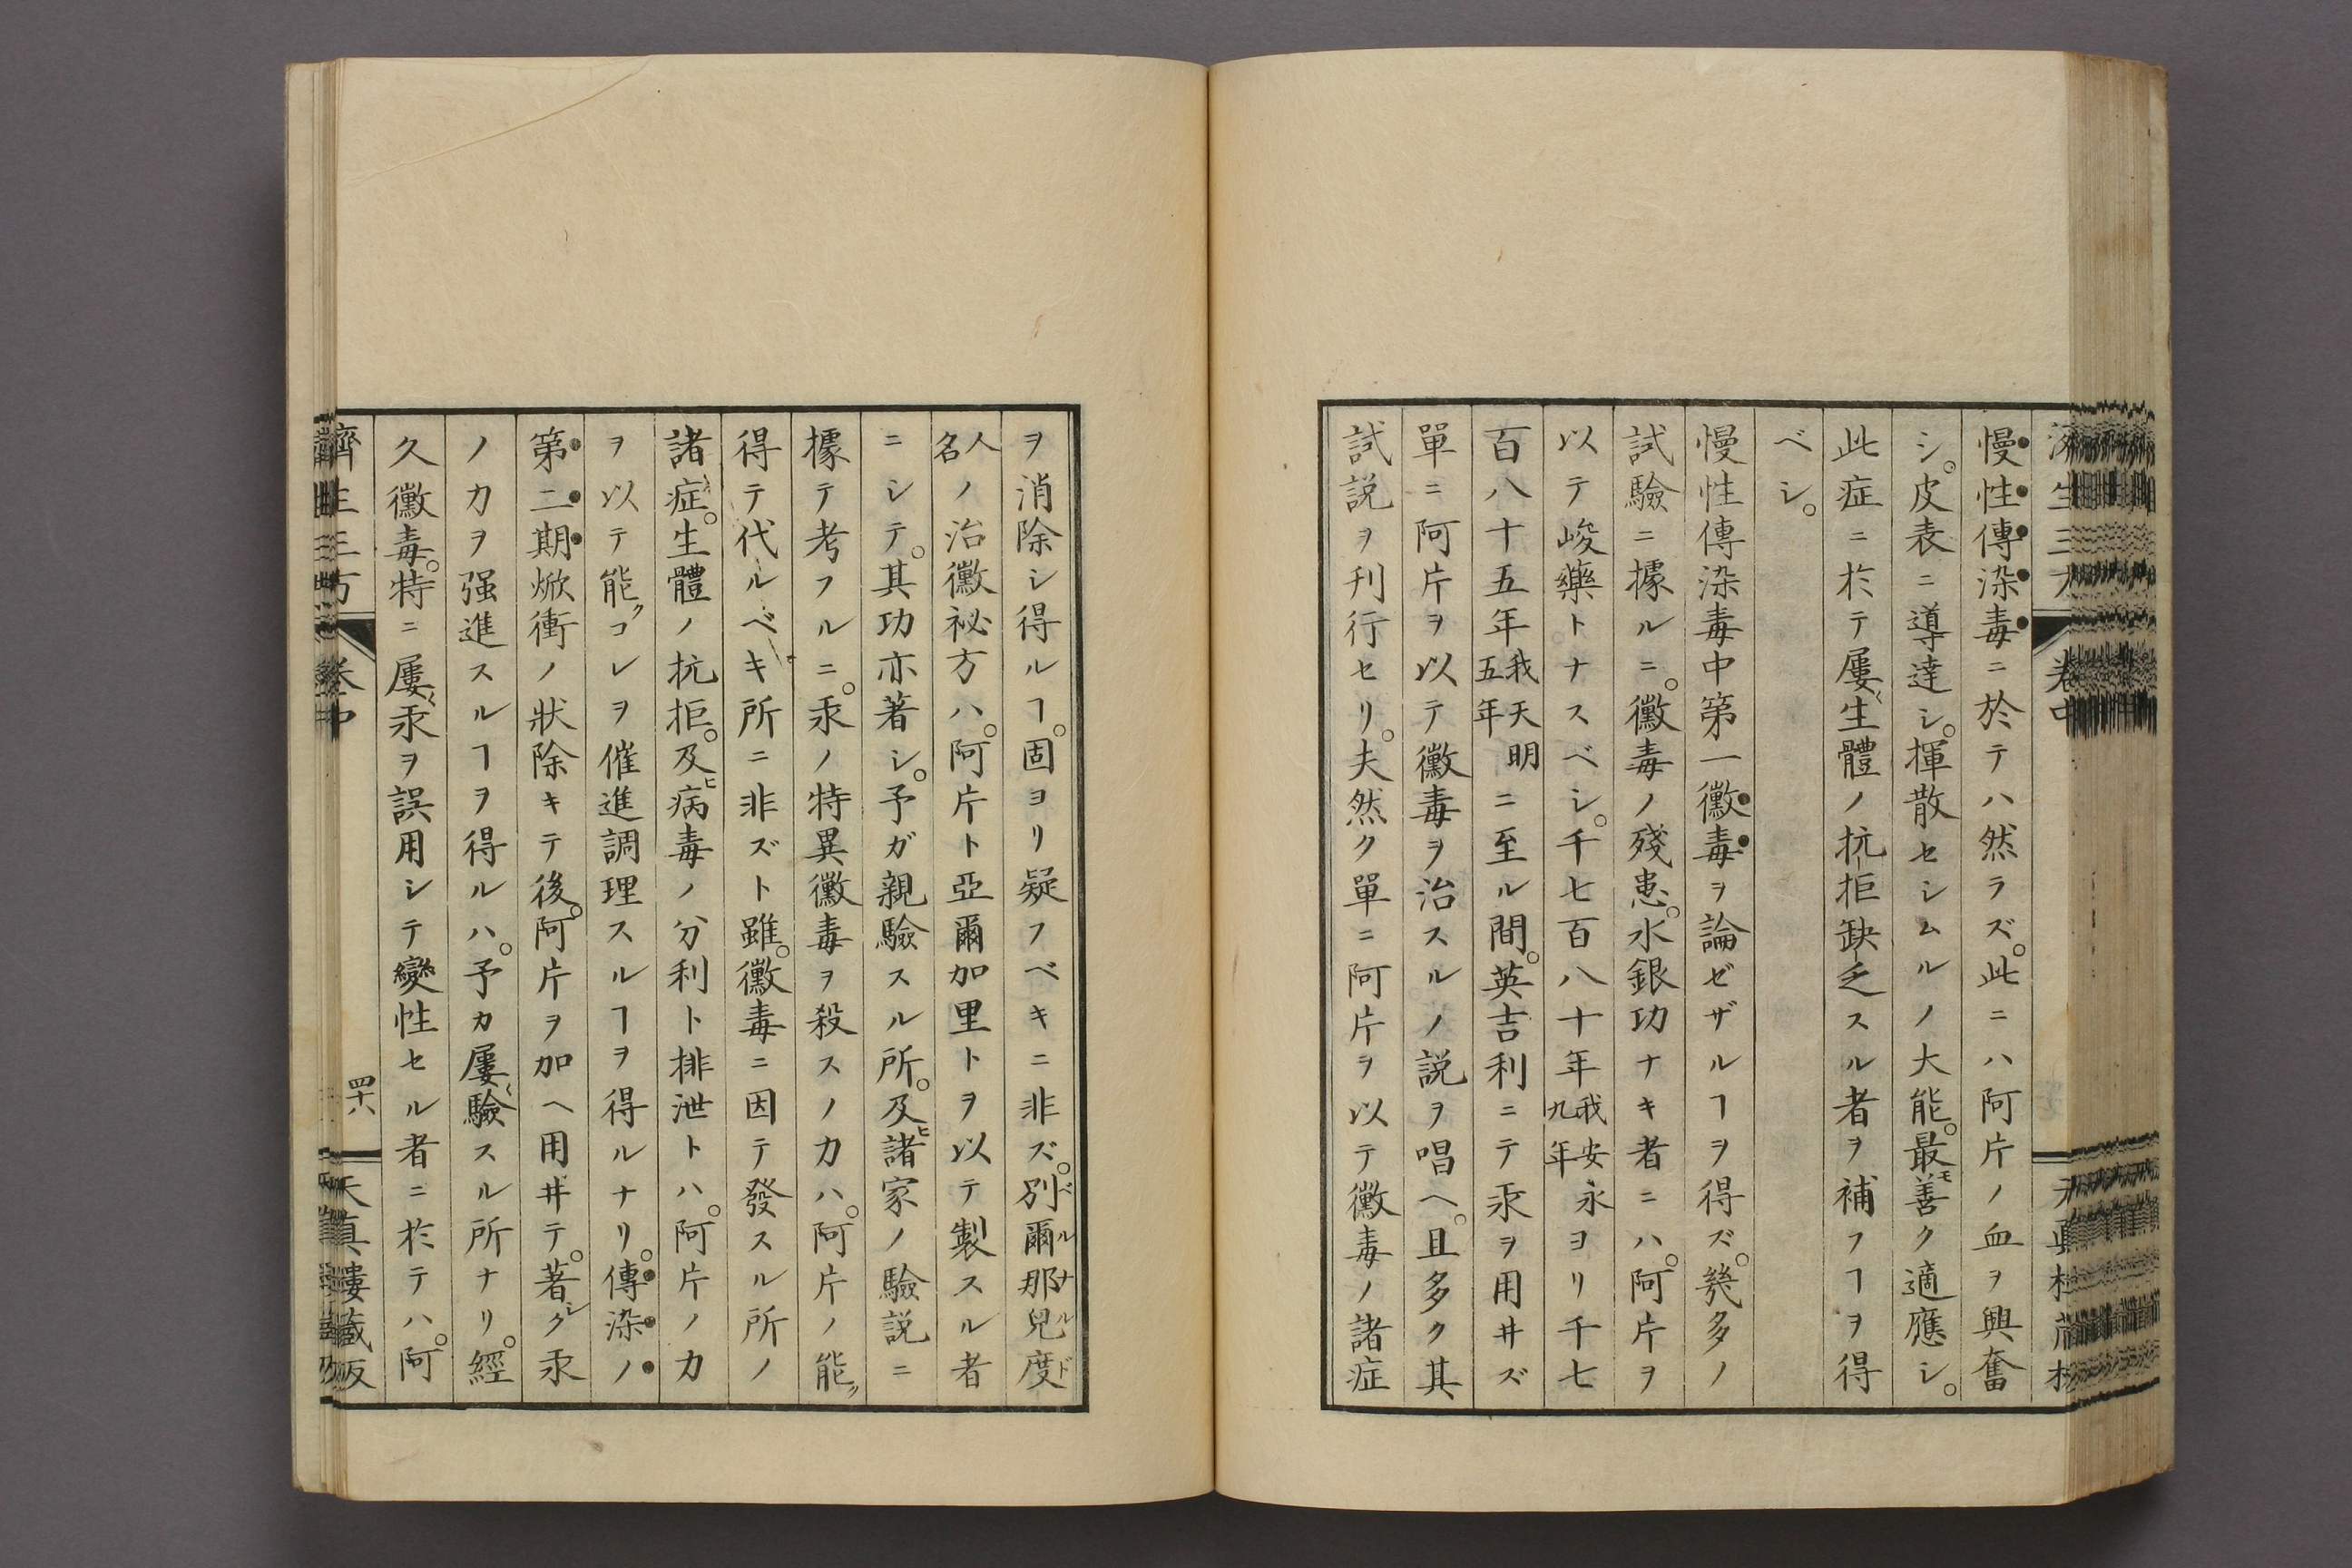 慢性傳染毒ニ於テハ然ラズ。此ニハ阿片ノ血ヲ興奮
シ。皮表ニ導達シ。揮散セシムルノ大能。最モ善ク適應シ。
此症ニ於テ屢〻生體ノ抗拒缺乏スル者ヲ補フヿヲ得
ベシ。
慢性傳染毒中第一黴毒ヲ論ゼザルヿヲ得ズ。幾多ノ
試驗ニ據ルニ。黴毒ノ殘患。水銀功ナキ者ニハ。阿片ヲ
以テ峻藥トナスベシ。千七百八十年我安永九年ヨリ千七
百八十五年我天明五年ニ至ル間。英吉利ニテ汞ヲ用井ズ
單ニ阿片ヲ以テ黴毒ヲ治スルノ説ヲ唱ヘ。且多ク其
試説ヲ刊行セリ。夫然ク單ニ阿片ヲ以テ黴毒ノ諸症
ヲ消除シ得ルヿ。固ヨリ疑フベキニ非ズ。別爾那兒度ベルナルド
人名ノ治黴祕方ハ。阿片ト亞爾加里トヲ以テ製スル者
ニシテ。其功亦著シ。予ガ親驗スル所。及ヒ諸家ノ驗説ニ
據テ考フルニ。汞ノ特異黴毒ヲ殺スノ力ハ。阿片ノ能ク
得テ代ルベキ所ニ非ズト雖。黴毒ニ因テ發スル所ノ
諸症。生體ノ抗拒。及ヒ病毒ノ分利ト排泄トハ。阿片ノ力
ヲ以テ能クコレヲ催進調理スルヿヲ得ルナリ。傳染ノ
第二期焮衝ノ狀除キテ後。阿片ヲ加ヘ用井テ。著シク汞
ノ力ヲ强進スルヿヲ得ルハ。予カ屢〻驗スル所ナリ。經
久黴毒。特ニ屢〻汞ヲ誤用シテ變性セル者ニ於テハ。阿
濟生三方 卷中 四十八 天真樓藏版